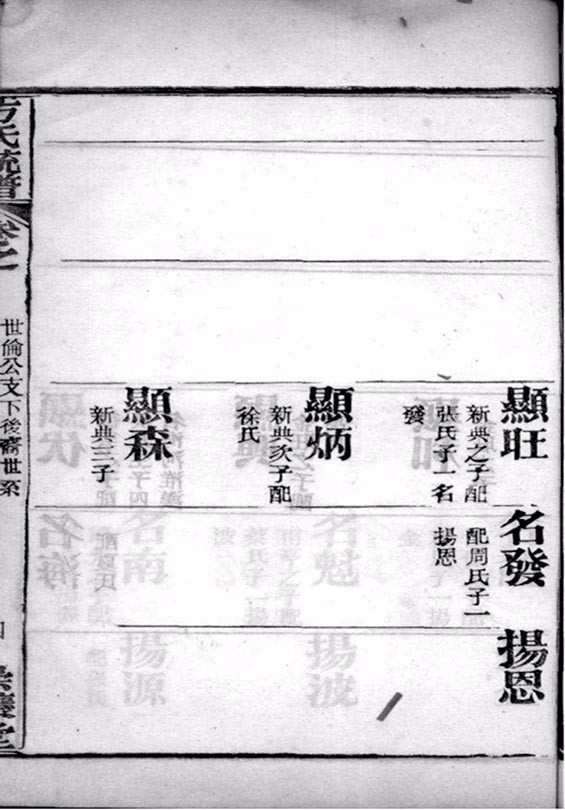 顯旺
新典之子配
張氏子一名
發
名發
配周氏子一
揚恩
揚恩
顯炳
新典次子配
徐氏
顯森
新典三子
方氏統譜
卷之
世倫公支下後裔世系
四